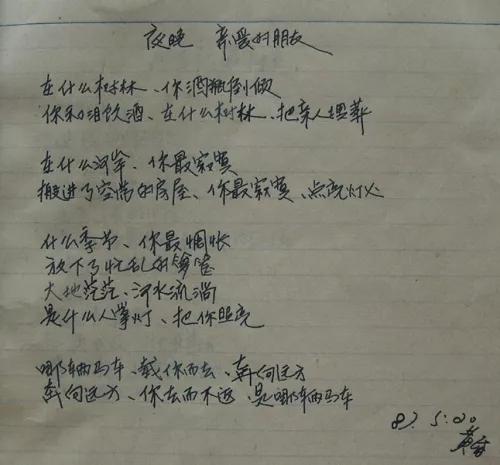 夜晚 亲爱的朋友
在什么树林、你酒瓶倒倾
你和泪饮酒、在什么树林、把亲人埋葬
在什么河岸、你最寂寞
搬进了空荡的房屋、你最寂寞、点亮灯火
什么季节、你最惆怅
放下了忙乱的箩筐
大地茫茫、河水流淌
是什么人掌灯、把你照亮
哪辆马车、载你而去、奔向远方
奔向远方、你去而不返、是哪辆马车
87. 5. 20